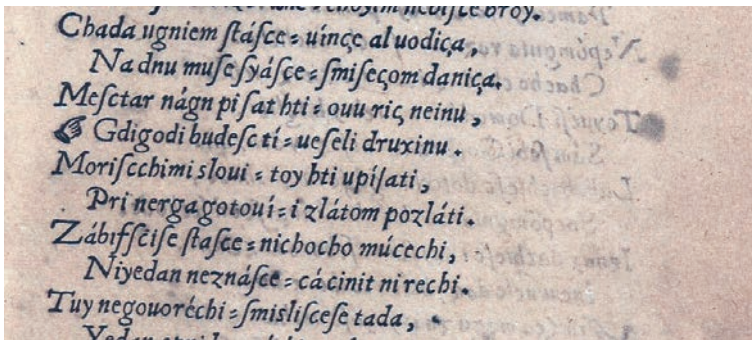 nebisce broy.
Chada ugniem ſtáſce : uínçe al uodiça,
Na dnu muſe ſyáſce : ſmiſeçom daniça.
Meſctar nágn piſat hti : ouu ric neinu,
☞ Gdigodi budeſc tí : ueſeli druxinu.
Moriſcchimi sloui : toy hti upíſati,
Pri nerga gotouí : i zlátom pozláti.
Zábiſſciſe ſtaſce : nichocho múcechi,
Niyedan neznáſce : cácinit ni rechi.
Tuy negouoréchi : ſmisliſceſe tada,